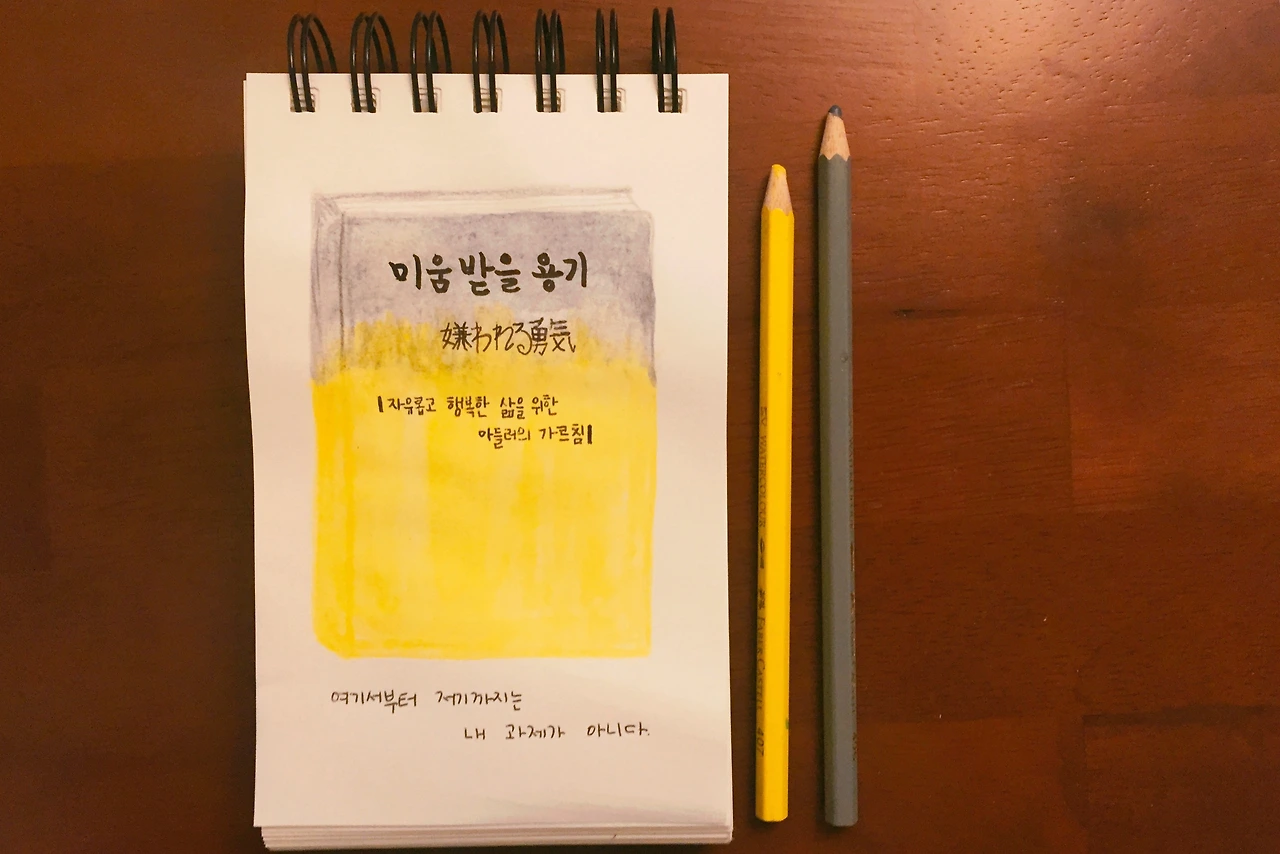 미움 받을 용기
嫌われる勇気
자유롭고 행복한 삶을 위한
아들러의 가르침
여기서부터 저기까지는
내 과제가 아니다.
WATERCOLOUR